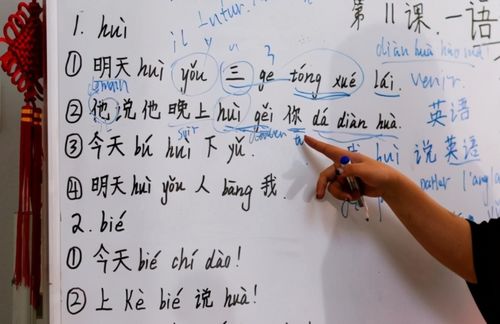 第11课.一语
1. huì
Futur.
il y a 3
diàn huà hào mǎ
① 明天 huì yǒu 三 ge tóng xué lái. venir.
demain
② 他说他晚上 huì gěi 你 dǎ diàn huà. 英语
soir
③ 今天 bú huì 下 yǔ. huì 说英语
④ 明天 huì yǒu 人 bāng 我.
2. bié
① 今天 bié chí dào!
② 上 Kè bié 说 huà!